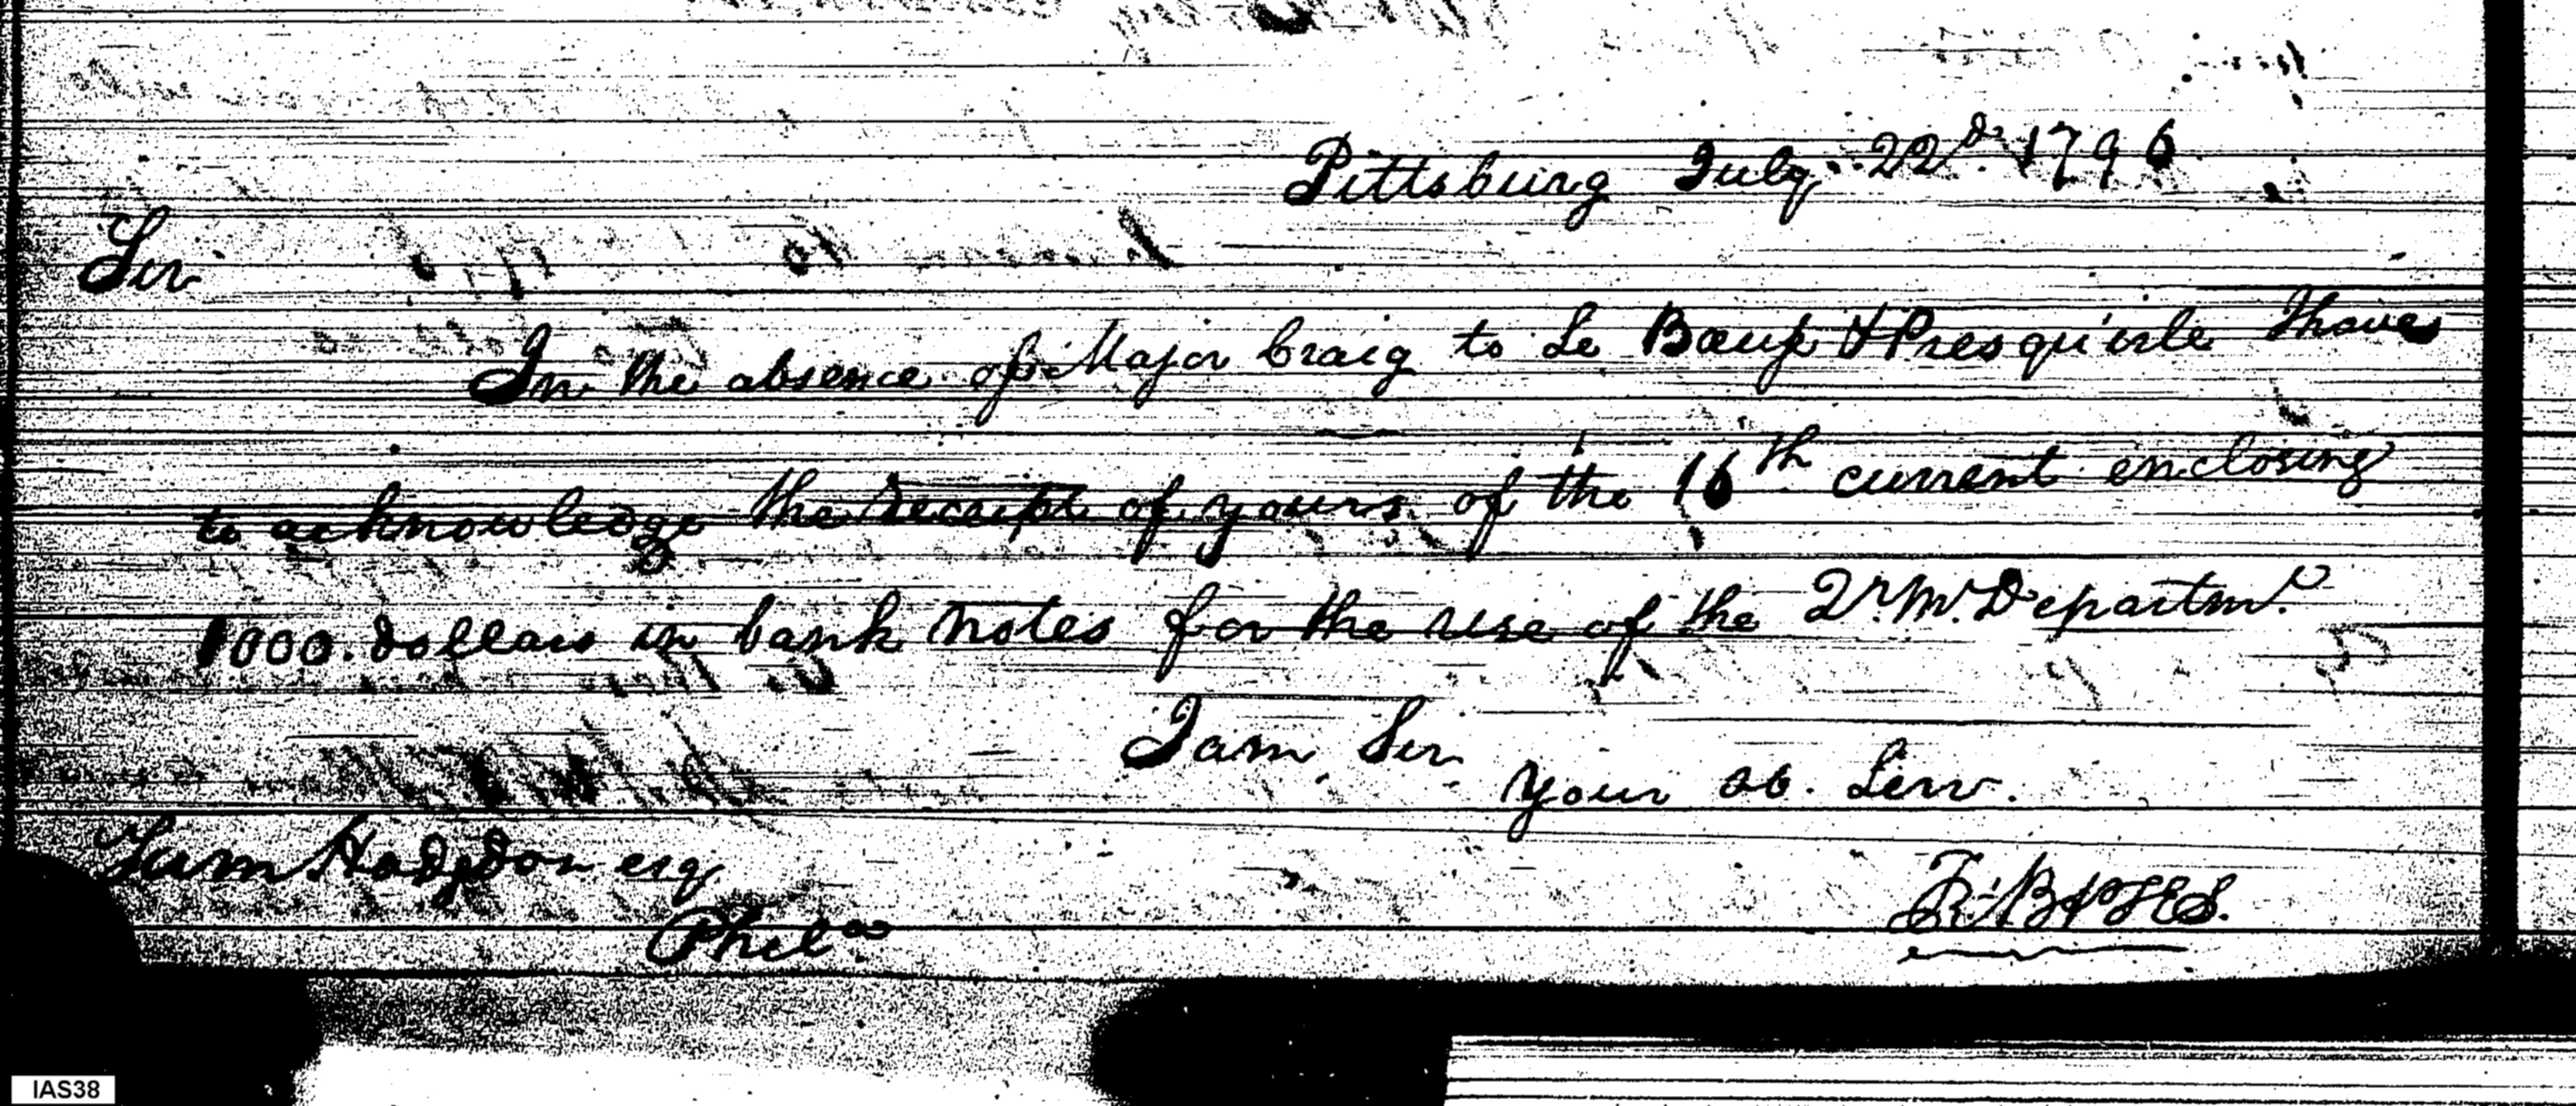 Pittsburg July 22d. 1796
Sir
In the absence of Major Craig to Le Bœuf & Presqu'isle I have
to acknowledge the receipt of yours of the 16th current enclosing
1000. dollars in bank notes for the use of the Qr. Mr. Departmt.
I am Sir
your ob. Serv.
Sam Hodgdon esq
Phila.
IAS38